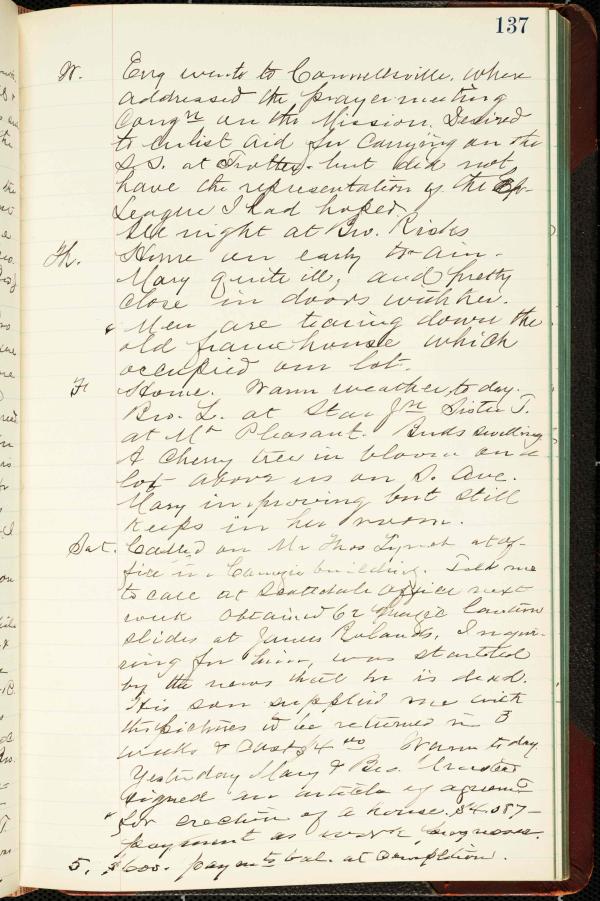 137
W. Evg went to Connellsville, where
addressed the prayermeeting
Congn on the Mission. Desired
to enlist aid for carrying on the
S.S. at Trotter. but did not
have the representation of the Ep-
League I had hoped.
All night at Bro. Risks
Th. Home on early train.
Mary quite ill, and pretty
close in doors with her.
Men are tearing down the
old frame house which
occupied our lot.
F. Home. Warm weather, to day.
Bro. L. at Star Jn Sister T.
at Mt Pleasant. Buds swelling
A cherry tree in bloom on a
lot above us on S. Ave.
Mary improving but still
keeps in her room.
Sat. Called on Mr Thos Lynch at of-
fice in Carnegie building. Told me
to call at Scottdale office next
week obtained 62 magic lantern
slides at James Rolands, Inquir-
ing for him, was startled
by the news that he is dead.
His son supplied me with
the pictures to be returned in 3
weeks & cost $4 00 Warm to day.
Yesterday Mary & Bro.
signed an article of agreemt
for erection of a house. $4.087-
payment as work progresses.
5. $600. paymts bal. at completion.